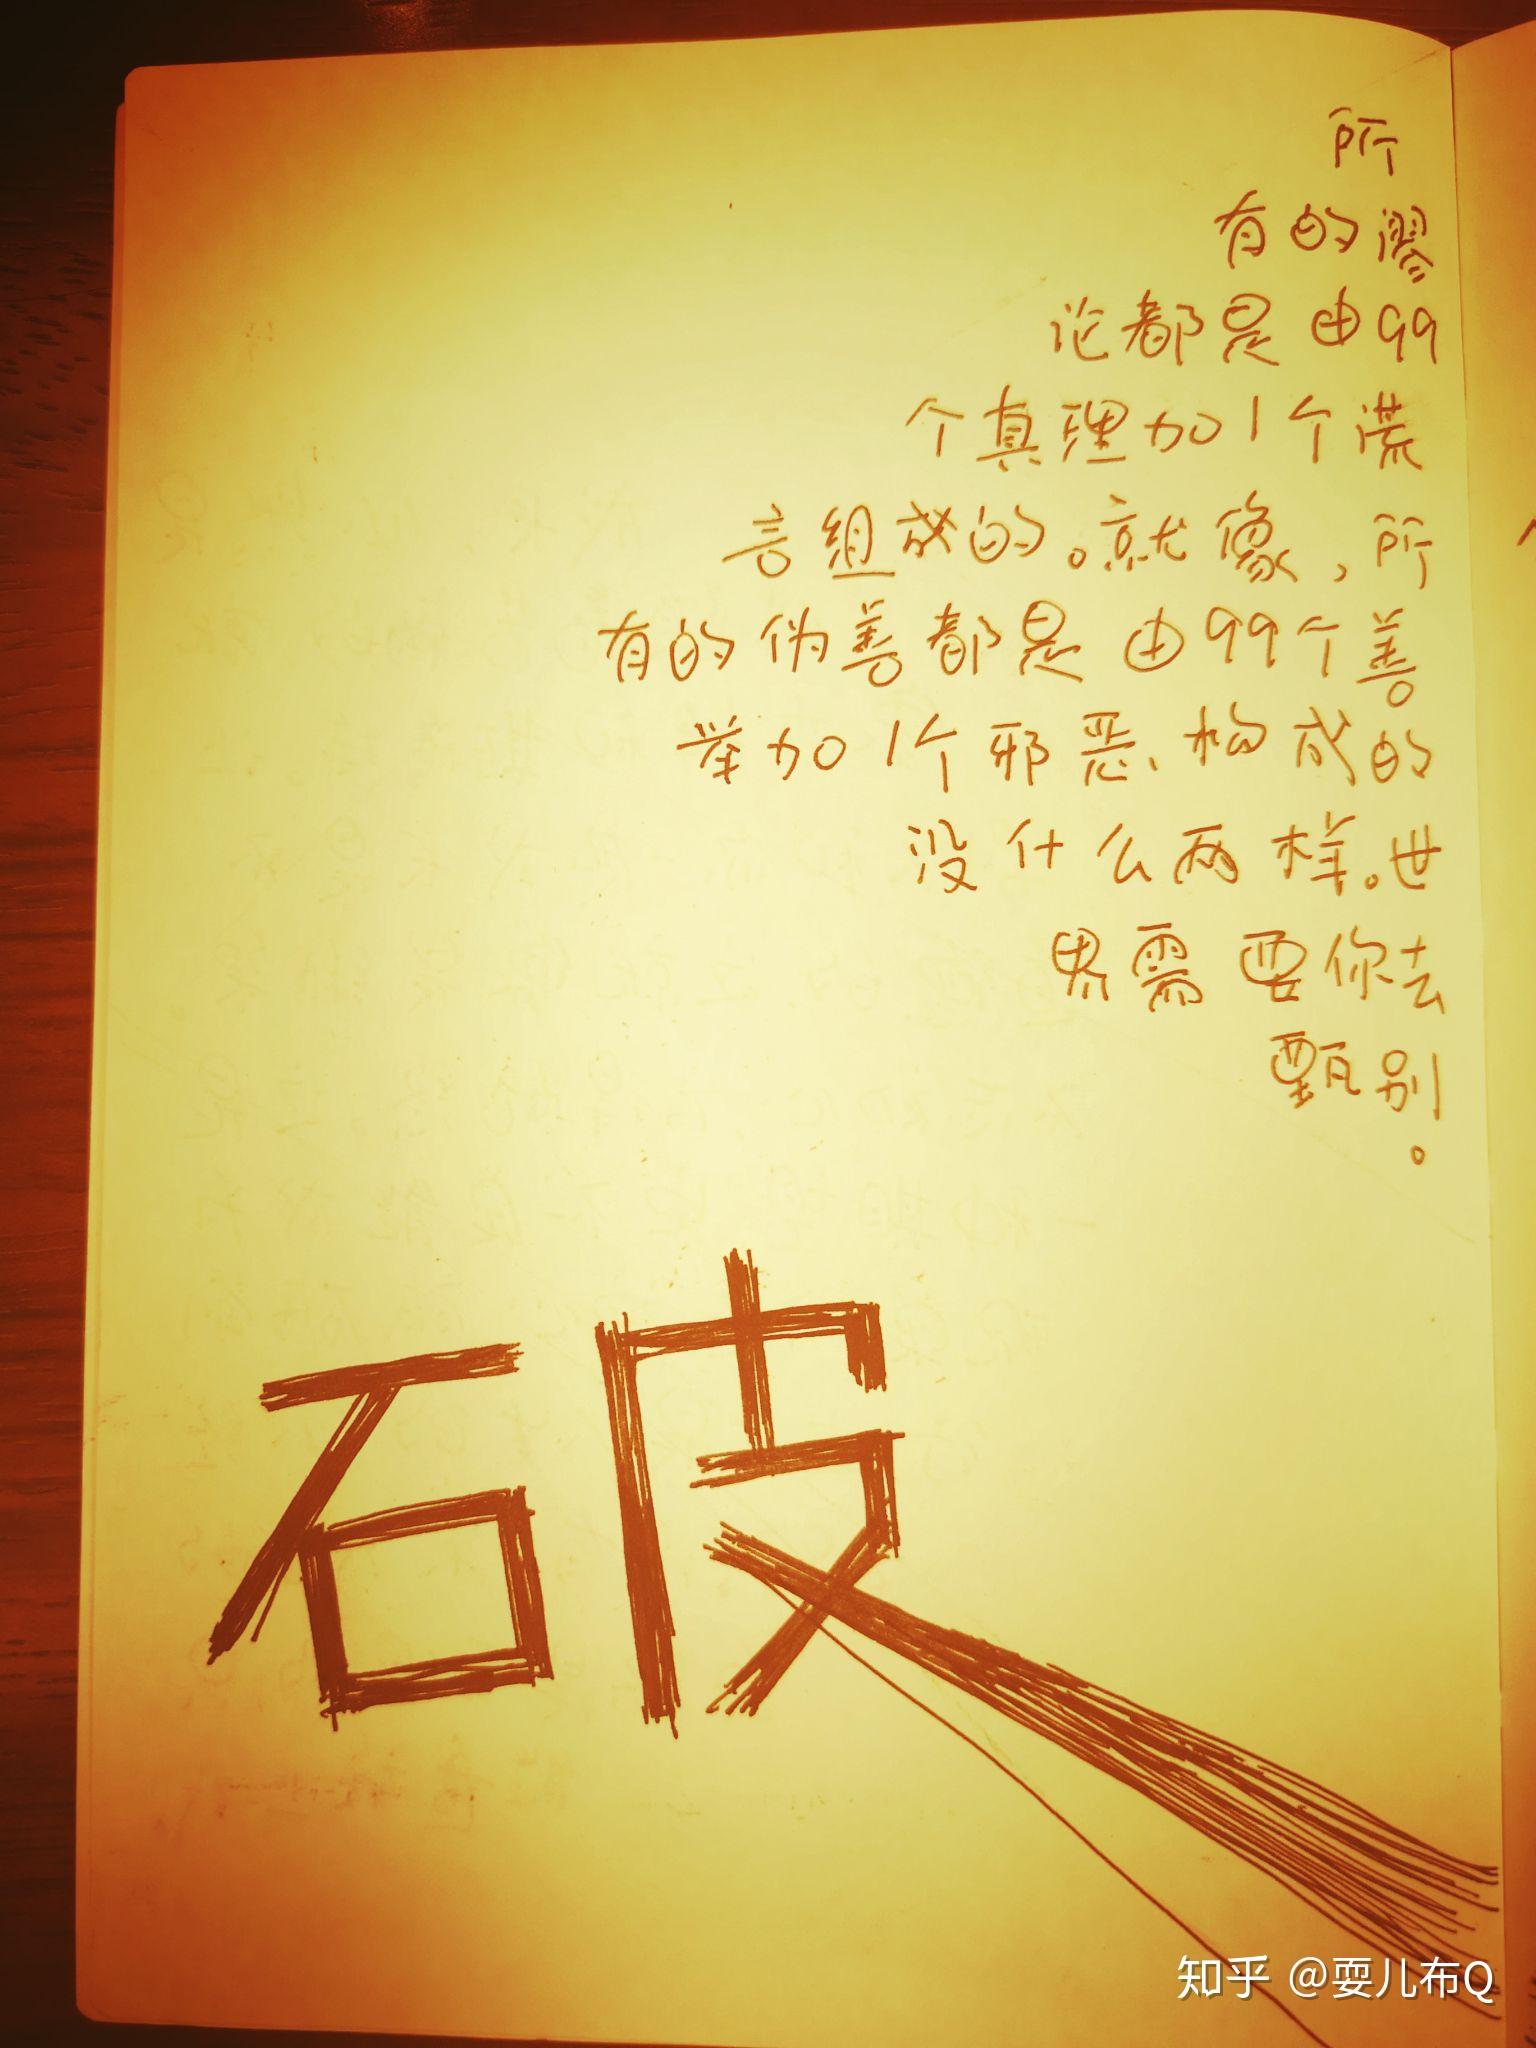 所
有的谬
论都是由99
个真理加1个谎
言组成的。就像,所
有的伪善都是由99个善
举加1个邪恶、构成的
没什么两样。世
界需要你去
甄别
。
破
知乎 @耍儿布Q